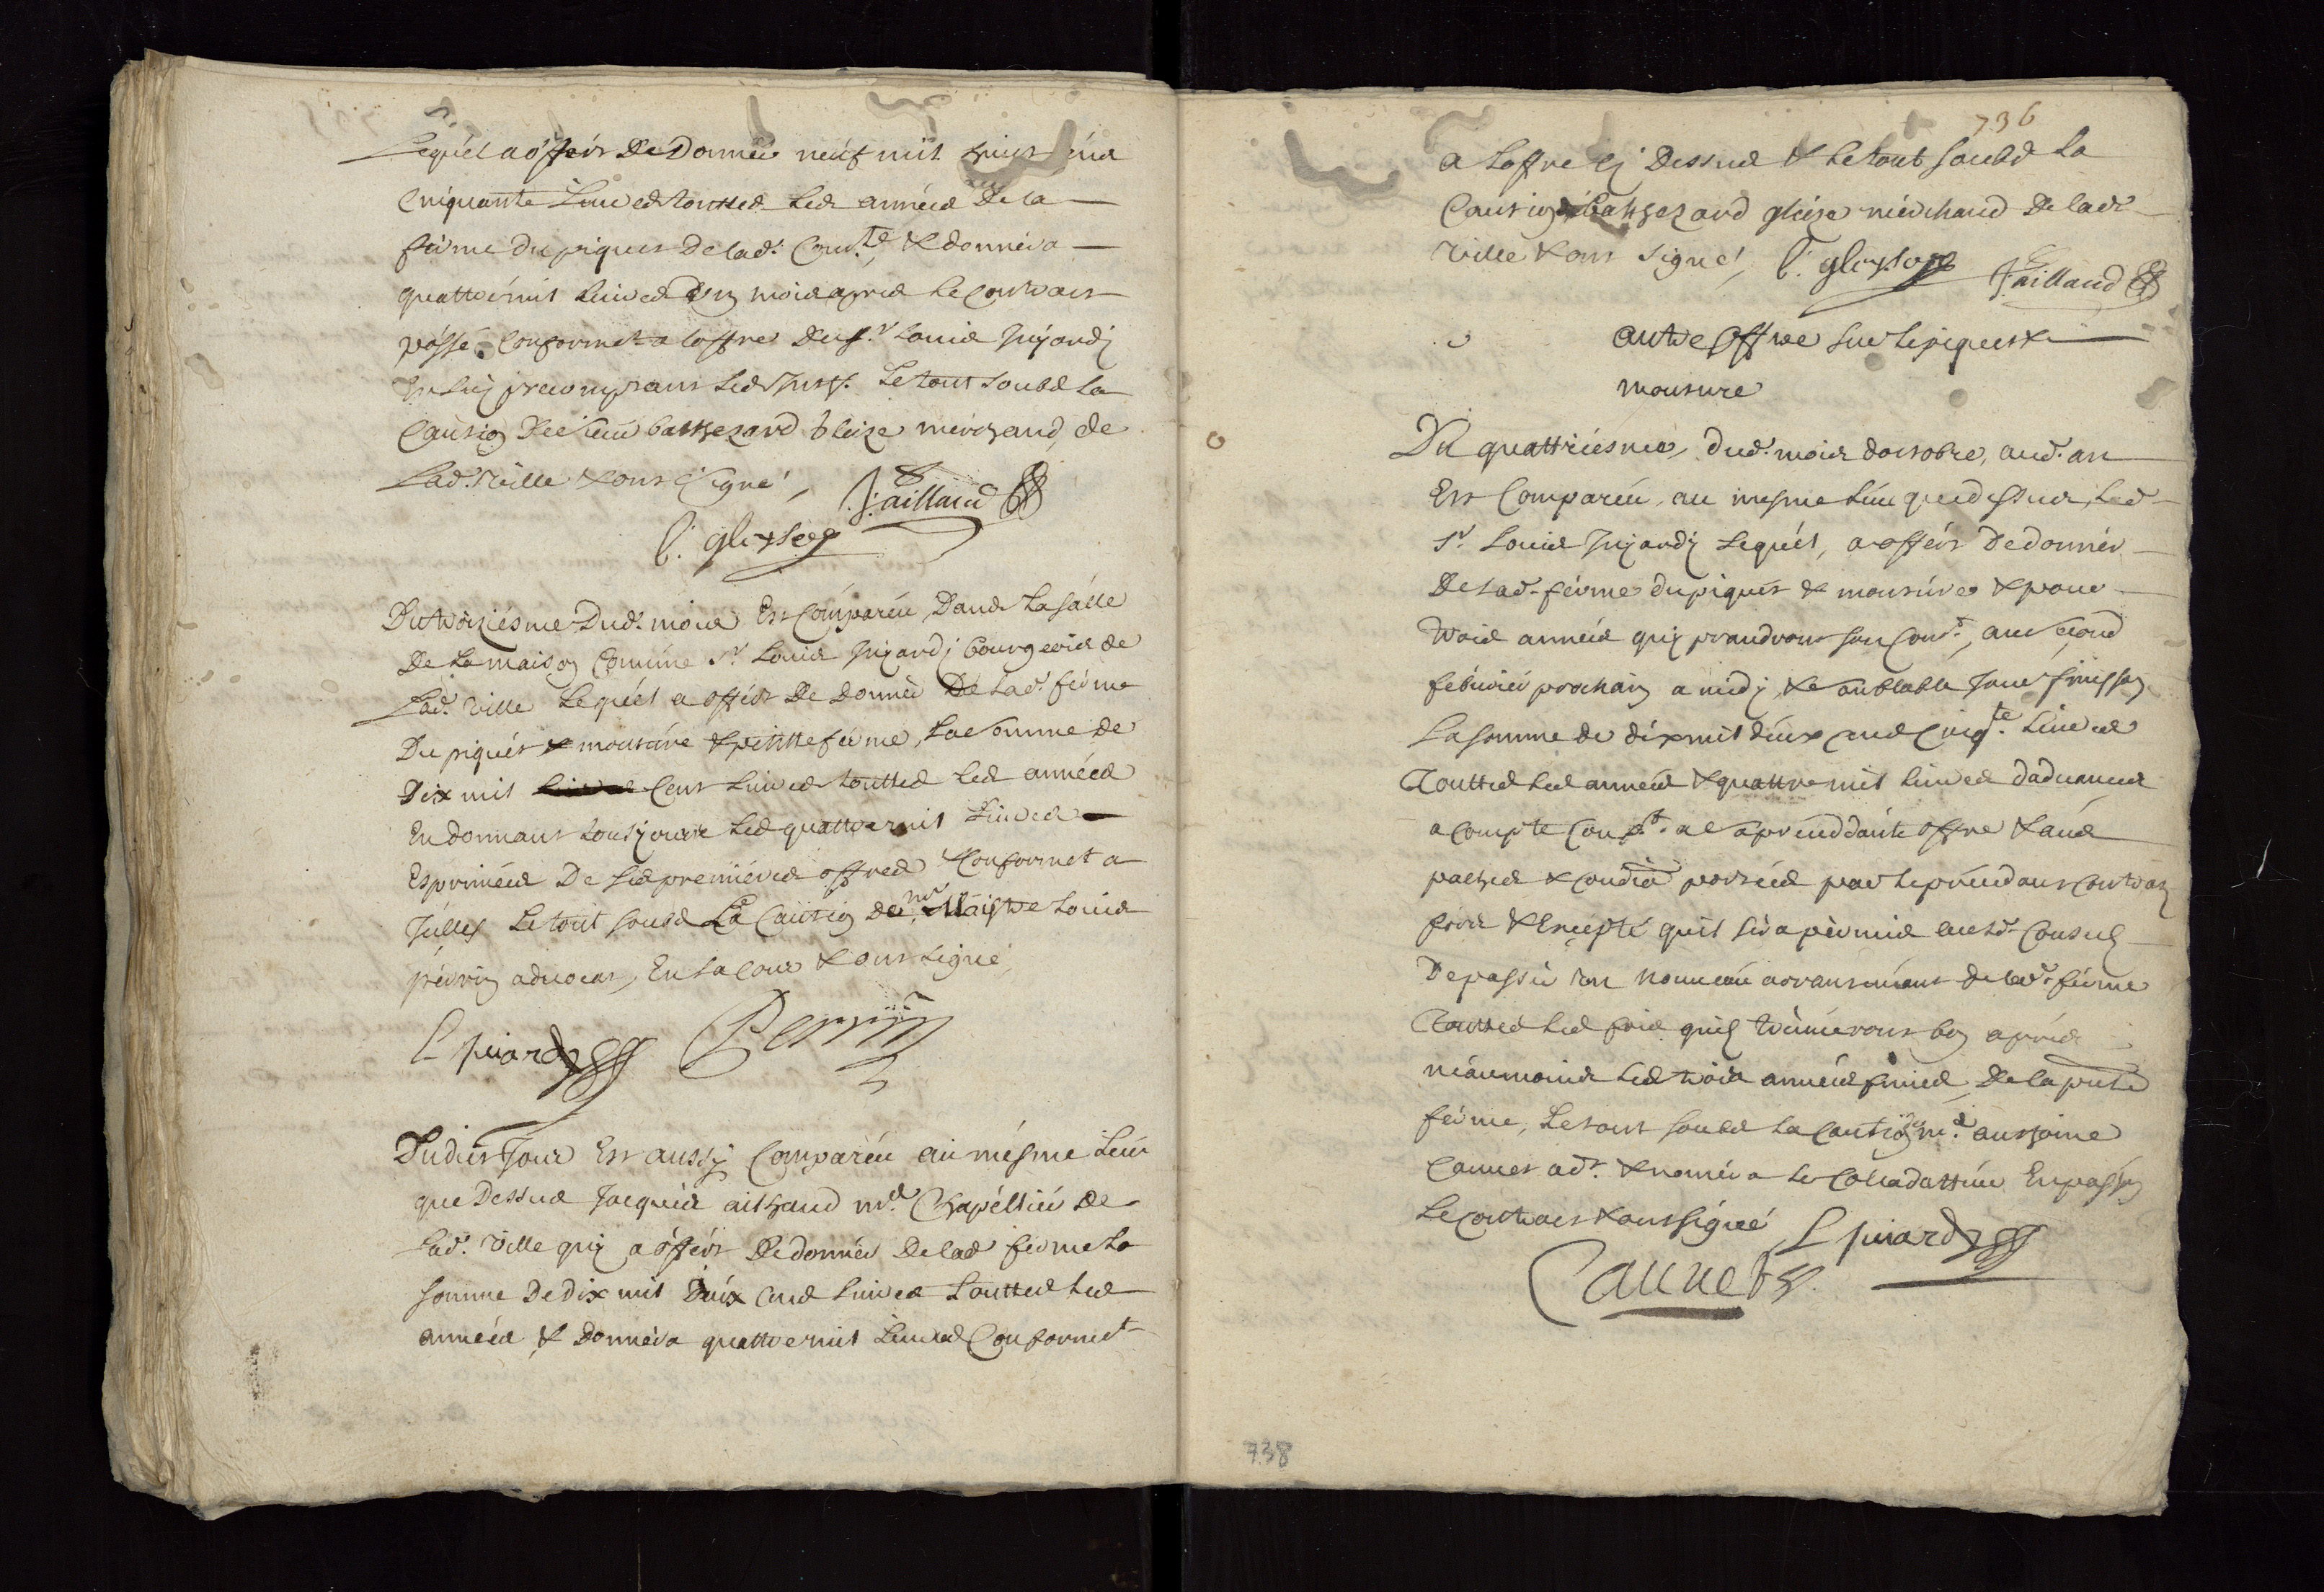 Lequel a offert de donner neuf mil huict cens
cinquante livres touttes les années de la
ferme du piquet de lad. com.te, & donnera
quattre mil livres un mois apres le contract
passé conformet a loffre du sr. Louis
le tout soubz la
caution de sieur balthezard gleize merchand, de
Lad. ville & ont signé, J: aillaud
b: gleyse
Du troiziesme dud. mois Est comparëu, dans la salle
de la maison comune sr Louis bourgeois de
Lad. ville Lequel a offert de donner de lad. ferme
du piquet & mouture & petitte ferme, la somme de
dix mil cent livres touttes les années
en donnant tousjours les quattre mil livres
exprimées de ses premieres offres & conformet a
Jcelles Le tout soubz La caution de mr Maistre Louis
perrin advocat, En la cour & ont signé,
Perrin
Dudict Jour Est aussy comparëu au mesme lieu
que dessus Jacques aithaud md. chapellier de
Lad. ville quy a offert de donner de lad ferme la
somme de dix mil deux cens livres touttes les
années, & donnera quattre mil livres conformet
736
a Loffre cy dessus & le tout soubz la
caution balthezard gleize merchand de lad.
ville & ont signé, b: gleyse J: aillaud
autre offre sur le piquet &
mouture
Du quattriesme, dud. mois doctobre, aud. an
Est comparëu, au mesme lieu que dessus, led
sr. Louis Lequel, a offert de donner
de lad. ferme du piquet & mouture & pour
trois années quy prandront son cours, au segond
febvrier prochain a midy, & semblable jour finissent
La somme de dix mil deux cens cinq.te livres
Touttes les années & quattre mil livres dadvances
a compte sa offre & aux
pactes & condions portées par le contrat
fors & excepté quil sera permis aud. consuls
de passer un nouveau arrantement de lad. ferme
Touttes les fois quils treuveront bon apres
néanmoins les trois années finies, de la pnte
ferme, Le tout soubz la caution de me. anthoine
caunet adt. & nomera le collaudatteur En passant
Le contract & ont signé
Caunet
738